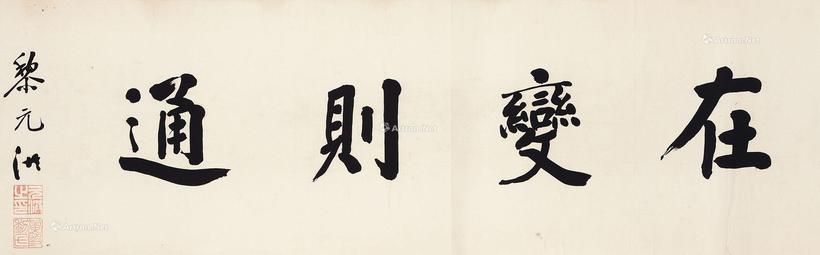 在變則通
黎元洪
Artron.Net
Artron.Net
Artron.Net